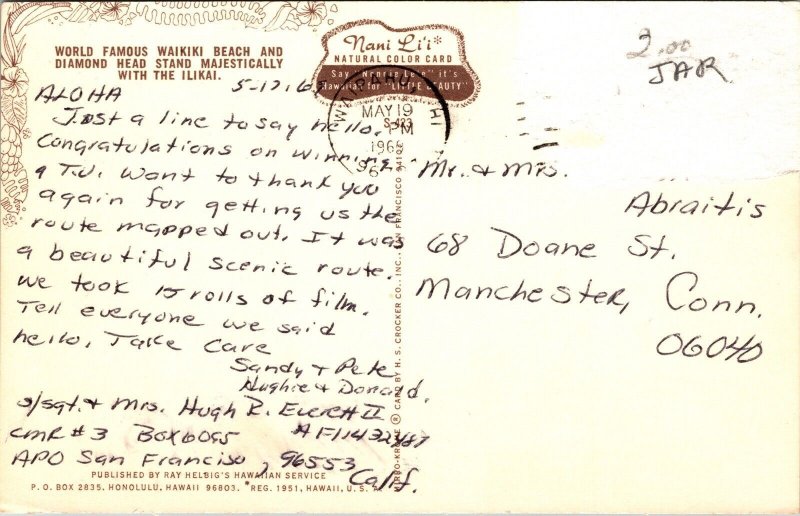 WORLD FAMOUS WAIKIKI BEACH AND
DIAMOND HEAD STAND MAJESTICALLY
WITH THE ILIKAI.
Nani Li'i*
NATURAL COLOR CARD
Say "Nannie Lee" it's
Hawaiian for "LITTLE BEAUTY"
2.00
JAR
HI
MAY 19
PM
S-423
5-17-67
ALOHA
Just a line to say hello.
Congratulations on winning
a T.V. Want to thank you
again for getting us the
route mapped out. It was
a beautiful scenic route.
we took 15 rolls of film.
Tell everyone we said
hello. Take Care
Sandy + Pete
Hughie + Donald.
S/Sgt. + Mrs. Hugh R. Everett II
CMR #3 BOX 6095 AF11432467
APO San Francisco, 96553
Calif.
Mr. + Mrs.
Abraitis
68 Doane St.
Manchester, Conn.
06040
CARD BY H. S. CROCKER CO., INC., SAN FRANCISCO 94103
PUBLISHED BY RAY HELBIG'S HAWAIIAN SERVICE
P. O. BOX 2835, HONOLULU, HAWAII 96803. *REG. 1951, HAWAII, U. S. A.